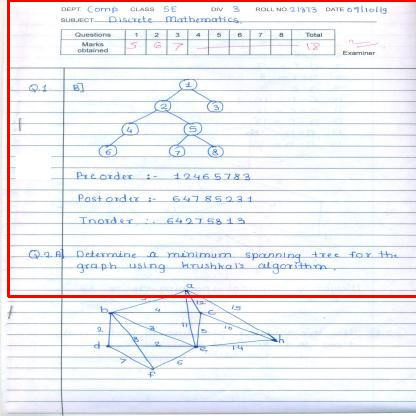 DEPT. Comp CLASS SE DIV 3 ROLL NO. 21373 DATE 09/10/19
SUBJECT Discrete Mathematics.
Questions 1 2 3 4 5 6 7 8 Total
Marks obtained 5 6 7 18
Examiner
Q.1 B]
1
2 3
4 5
6 7 8
Preorder :- 12465783
Postorder :- 64785231
Inorder :- 64275813
Q.2.A] Determine a minimum spanning tree for the
graph using krushkal's algorithm.
a
12 15
b 4 c
11 10
2 3 5
8 h
d 2 e 14
7 6
f